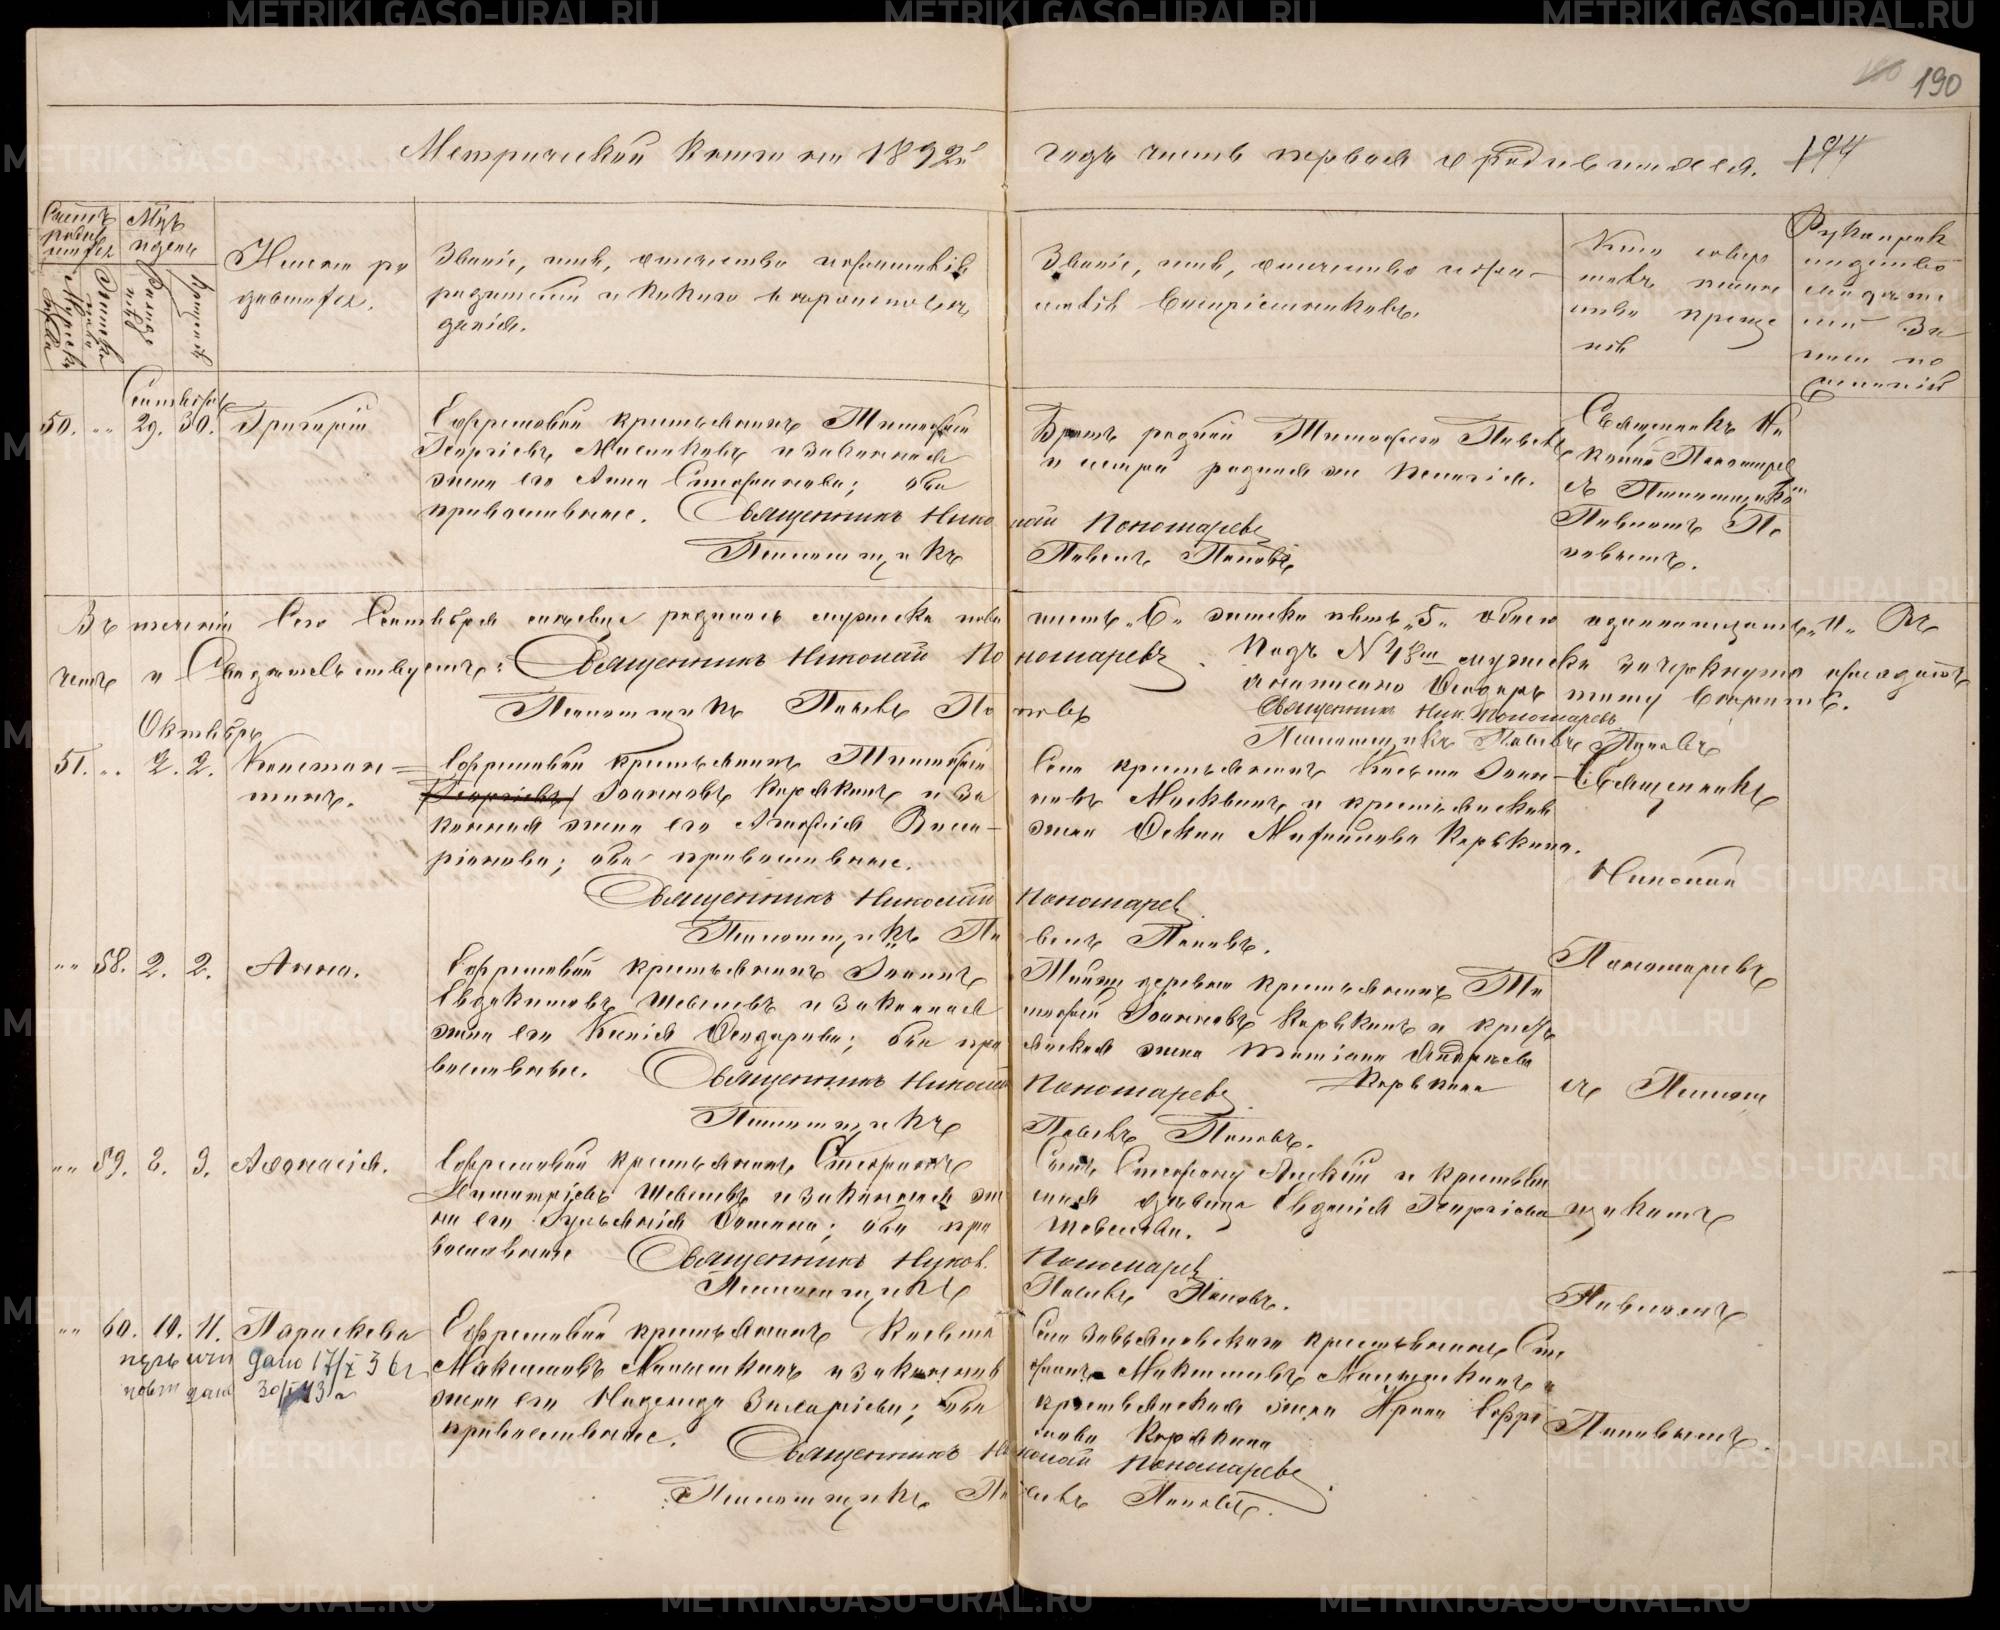 190
Метрической книги на 1892й годъ часть первая о родившихся. 194
Счетъ родив шихся
Мужеска пола
Женска пола
Мѣц. и день
Рожденія
Крещенія
Имена ро
дившихся.
Званіе, имя, отчество и фамилія
родителей и какого вѣроисповѣ
данія.
Званіе, имя, отчество и фами–
лія Воспріемниковъ.
Кто совер
шалъ таин
ство креще
нія
Рукоприк
ладство
свидѣте
лей за
писи по
желанію
Сентябрь
50. „ „ 29. 30. Григорій
Тимофей
Георгіевъ и законная
жена его Анна Стефанова; оба
православные. Священникъ Николай Пономаревъ
Псаломщикъ Павелъ Поповъ
Братъ родной Тимофея Павелъ
и сестра родная же Пелагія.
Священникъ Ни
колай Пономарев
съ Псаломщико
Павломъ По
повымъ.
Въ теченіи Сего Сентября мѣсяца родилось мужеска пола шесть „6„ женска пять „5„ обоего одиннадцать „11„ Въ
чемъ и Свидѣтельствуемъ: Священникъ Николай Пономаревъ.
Псаломщикъ Павелъ Поповъ
Подъ N 48 мужска зачеркнуто
и написано Ѳеодоръ тому вѣрить.
Священникъ Ник. Пономаревъ
Псаломщикъ Павелъ Поповъ
Октябрь
51. „ „ 2. 2. Констан=
тинъ.
крестьянинъ Тимофей
Георгіевъ Іоанновъ Корякинъ и за
конная жена его Агафія Васи–
ріанова; оба православные.
Священникъ Николай Пономарев
Псаломщикъ Павелъ Поповъ.
Села крестьянинъ Косьма Іоан–
новъ Москвинъ и крестьянская
жена Михайлова Корякина.
Священникъ
Николай
Пономаревъ
съ Псалом
щикомъ
Павломъ
Поповымъ.
„ „ 58. 2. 2. Анна.
крестьянинъ Іоаннъ
Евдокимовъ Шевелевъ и законная
жена его Ксенія Ѳеодорова; оба пра
вославные. Священникъ Николай Пономаревъ.
Псаломщикъ Павелъ Поповъ.
Тойже деревни крестьянинъ Ти
мофей Іоанновъ Корякинъ и кресть
янская жена Татіана Андреева
Корякина
„ „ 59. 2. 3. Аѳанасія.
крестьянинъ Стефанъ
Димитріевъ Шевелевъ и законная же
на его Ѳомина; оба пра
вославные Священникъ Никол. Пономарев
Псаломщикъ Павелъ Поповъ.
Сынъ Стефану Алексѣй и крестьян
ская дѣвица Евдокія Георгіева
Шевелева.
„ „ 60. 10. 11. Параскева
дано 17/X 36г
повт дано 30/I 43г
крестьянинъ Косьма
Максимовъ и законная
жена его Надежда Захаріева; оба
православные. Священникъ Николай Пономаревъ.
Псаломщикъ Павелъ Поповъ.
Села Завьяловскаго крестьянинъ Сте
фанъ Максимовъ и
крестьянская жена Ирина Ефре
мова Корякина